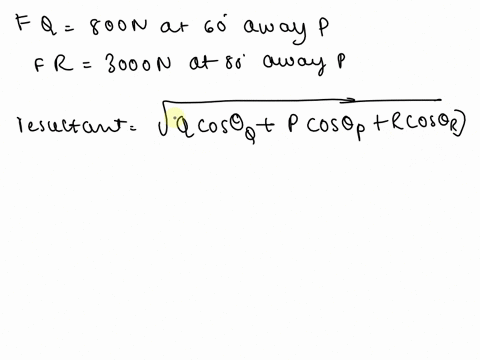 F Q = 800N at 60° away P
F R = 3000N at 80° away P
resultant = √Q cosθ_Q + P cosθ_P + R cosθ_R)